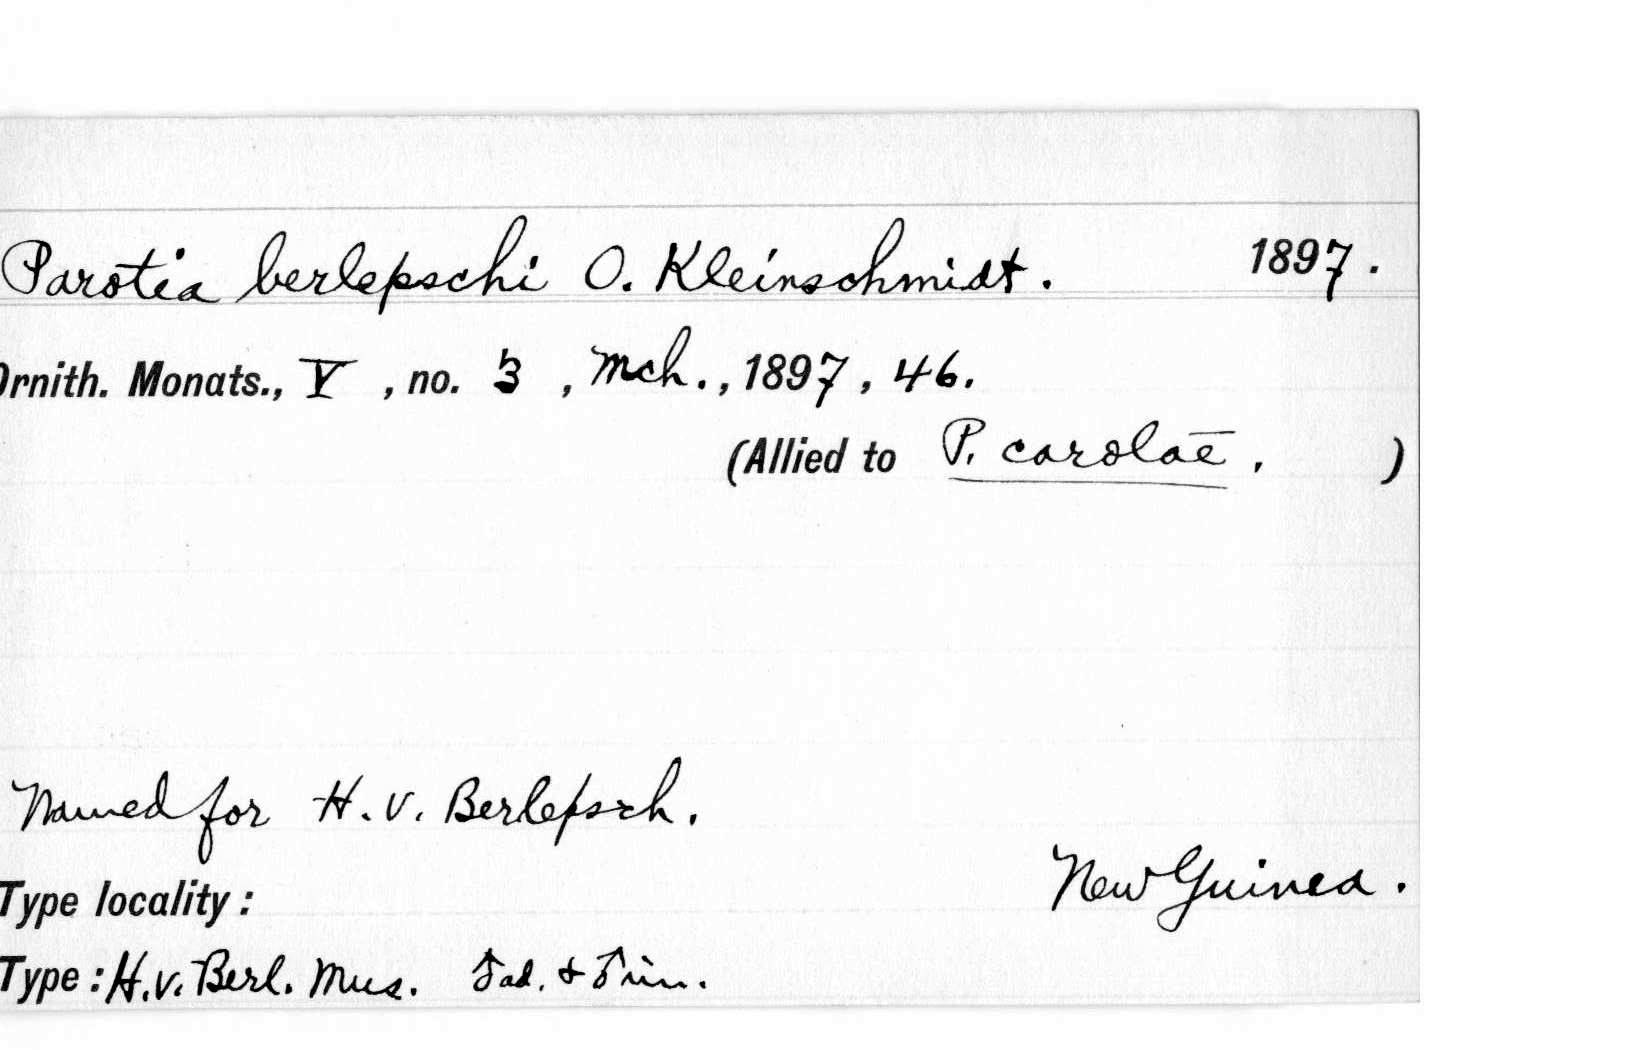 Parotia berlepschi O. Kleinschmidt. 1897.
Ornith. Monats., V, no. 3, Mch., 1897, 46.
(Allied to P. carolae. )
Named for H. v. Berlepsch.
New Guinea.
Type locality:
Type: H. v. Berl. Mus. ♂ ad. & ♂ im.